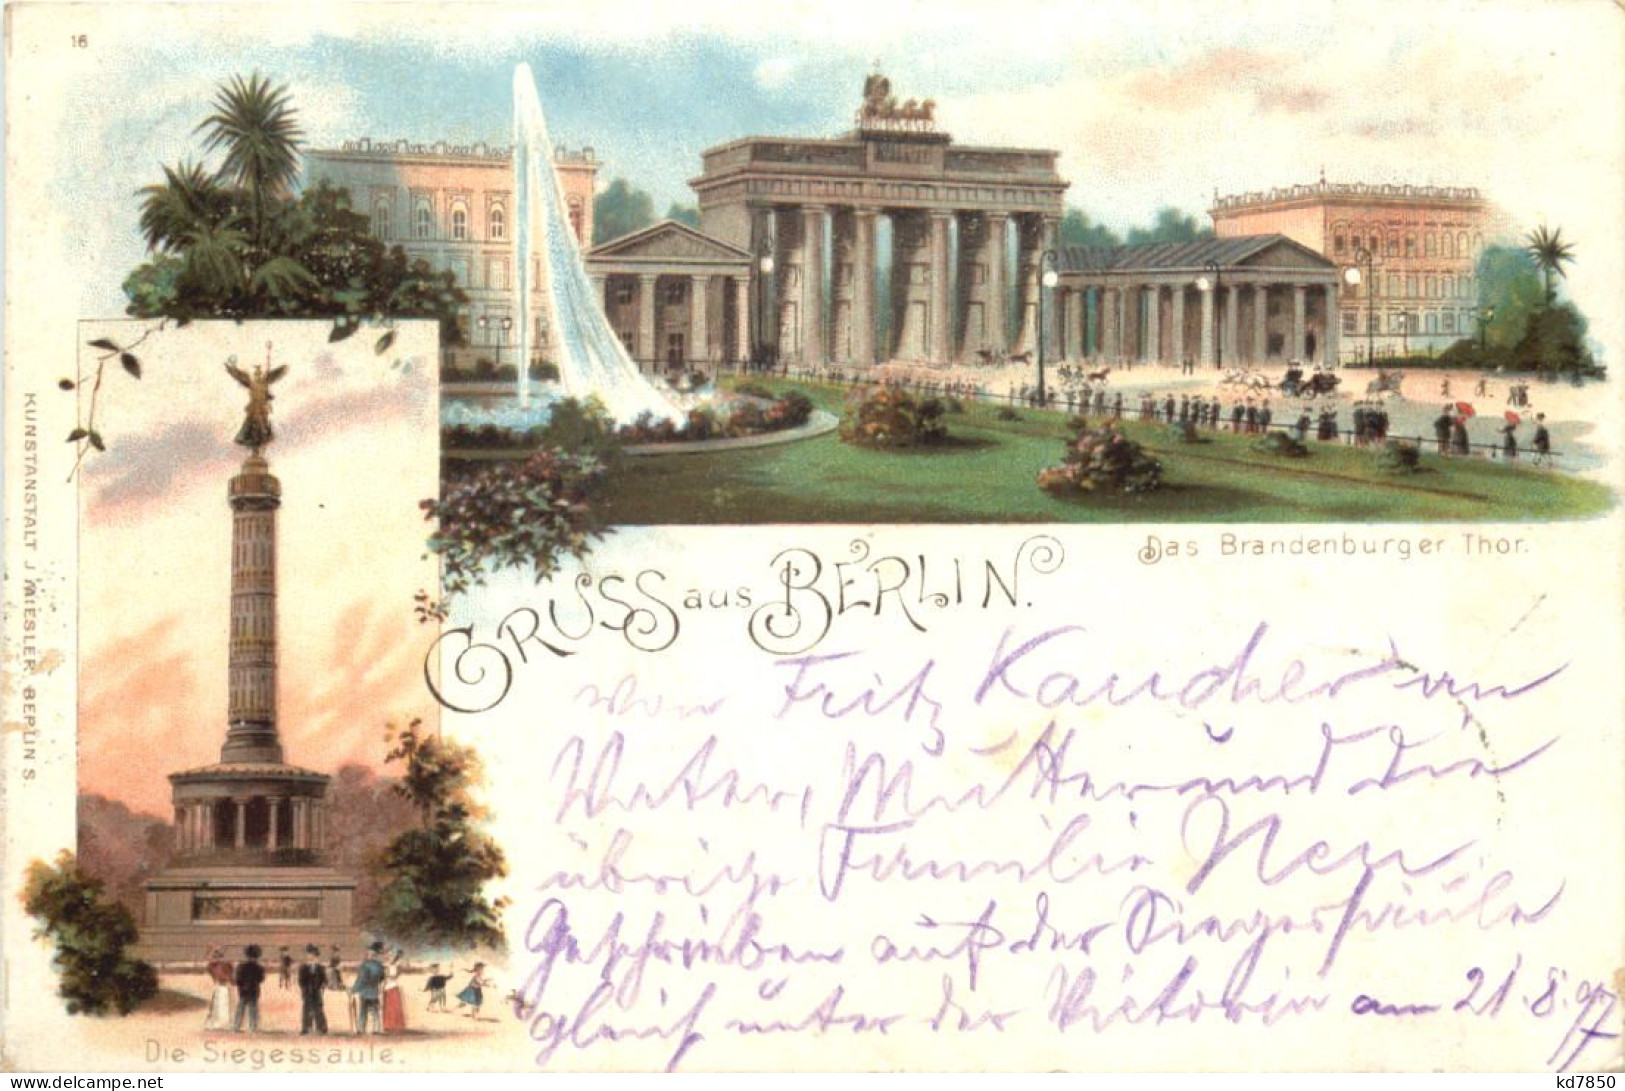 16
KUNSTANSTALT J MIESLER BERLIN S
Das Brandenburger Thor.
GRUSS aus BERLIN.
von Fritz Kaucher an
Vater, Mutter und die
übrige Familie
Geschrieben auf der Siegessäule
gleich unter der Victoria am 21.8.97
Die Siegessäule.
www.delcampe.net
kd7850